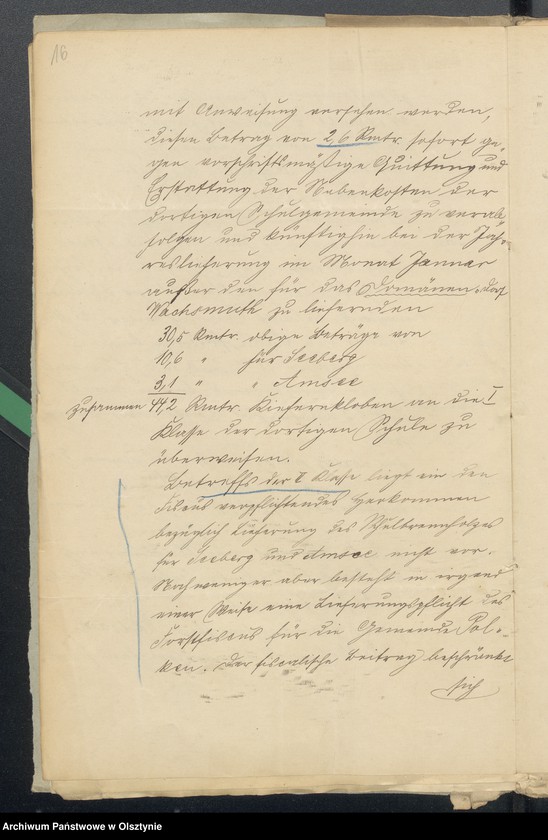 16
mit Anweisung versehen werden,
diesen Betrag von 2,6 Rmtr. sofort ge-
gen vorschriftsmäßige Quittung und
Erstattung der Nebenkosten der
dortigen Schulgemeinde zu verab-
folgen und künftighin bei der Jah-
reslieferung im Monat Januar
außer den für das Domänen-Dorf
Wachsmuth zu liefernden
30,5 Rmtr. obige Beträge von
10,6 " für Seeberg
3,1 " " Amsee
zusammen 44,2 Rmtr. Kiefernkloben an die I
Klasse der dortigen Schule zu
überweisen.
Betreffs der II Klasse liegt ein den
Fiskus verpflichtendes Herkommen
bezüglich Lieferung des Schulbrennholzes
für Seeberg und Amsee nicht vor.
Noch weniger aber besteht in irgend
einer Weise eine Lieferungspflicht des
Forstfiskus für die Gemeinde Pol-
ken. Der fiscalische Beitrag beschränkt
sich
Archiwum Państwowe w Olsztynie